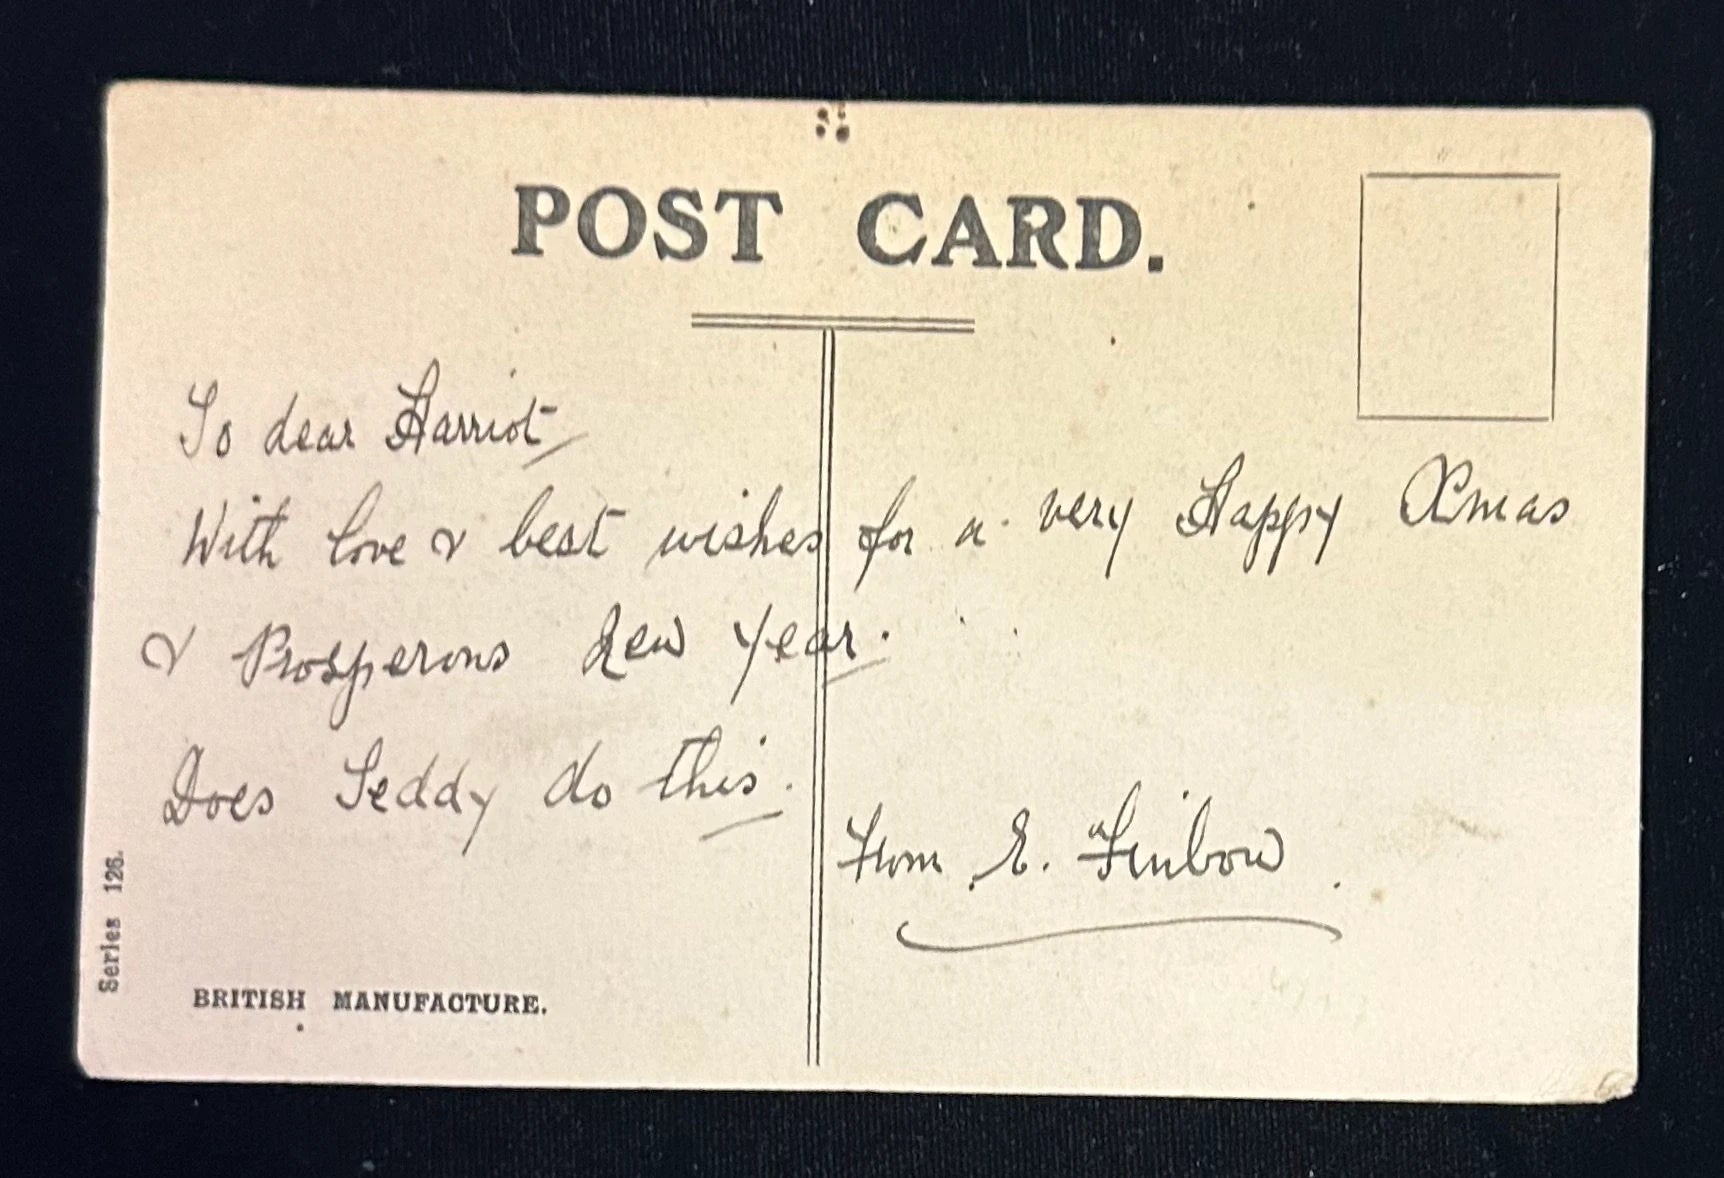 POST CARD.
To dear Harriot
With love & best wishes for a very Happy Xmas
& Prosperous New Year.
Does Teddy do this.
From E. Finbow
Series 126.
BRITISH MANUFACTURE.